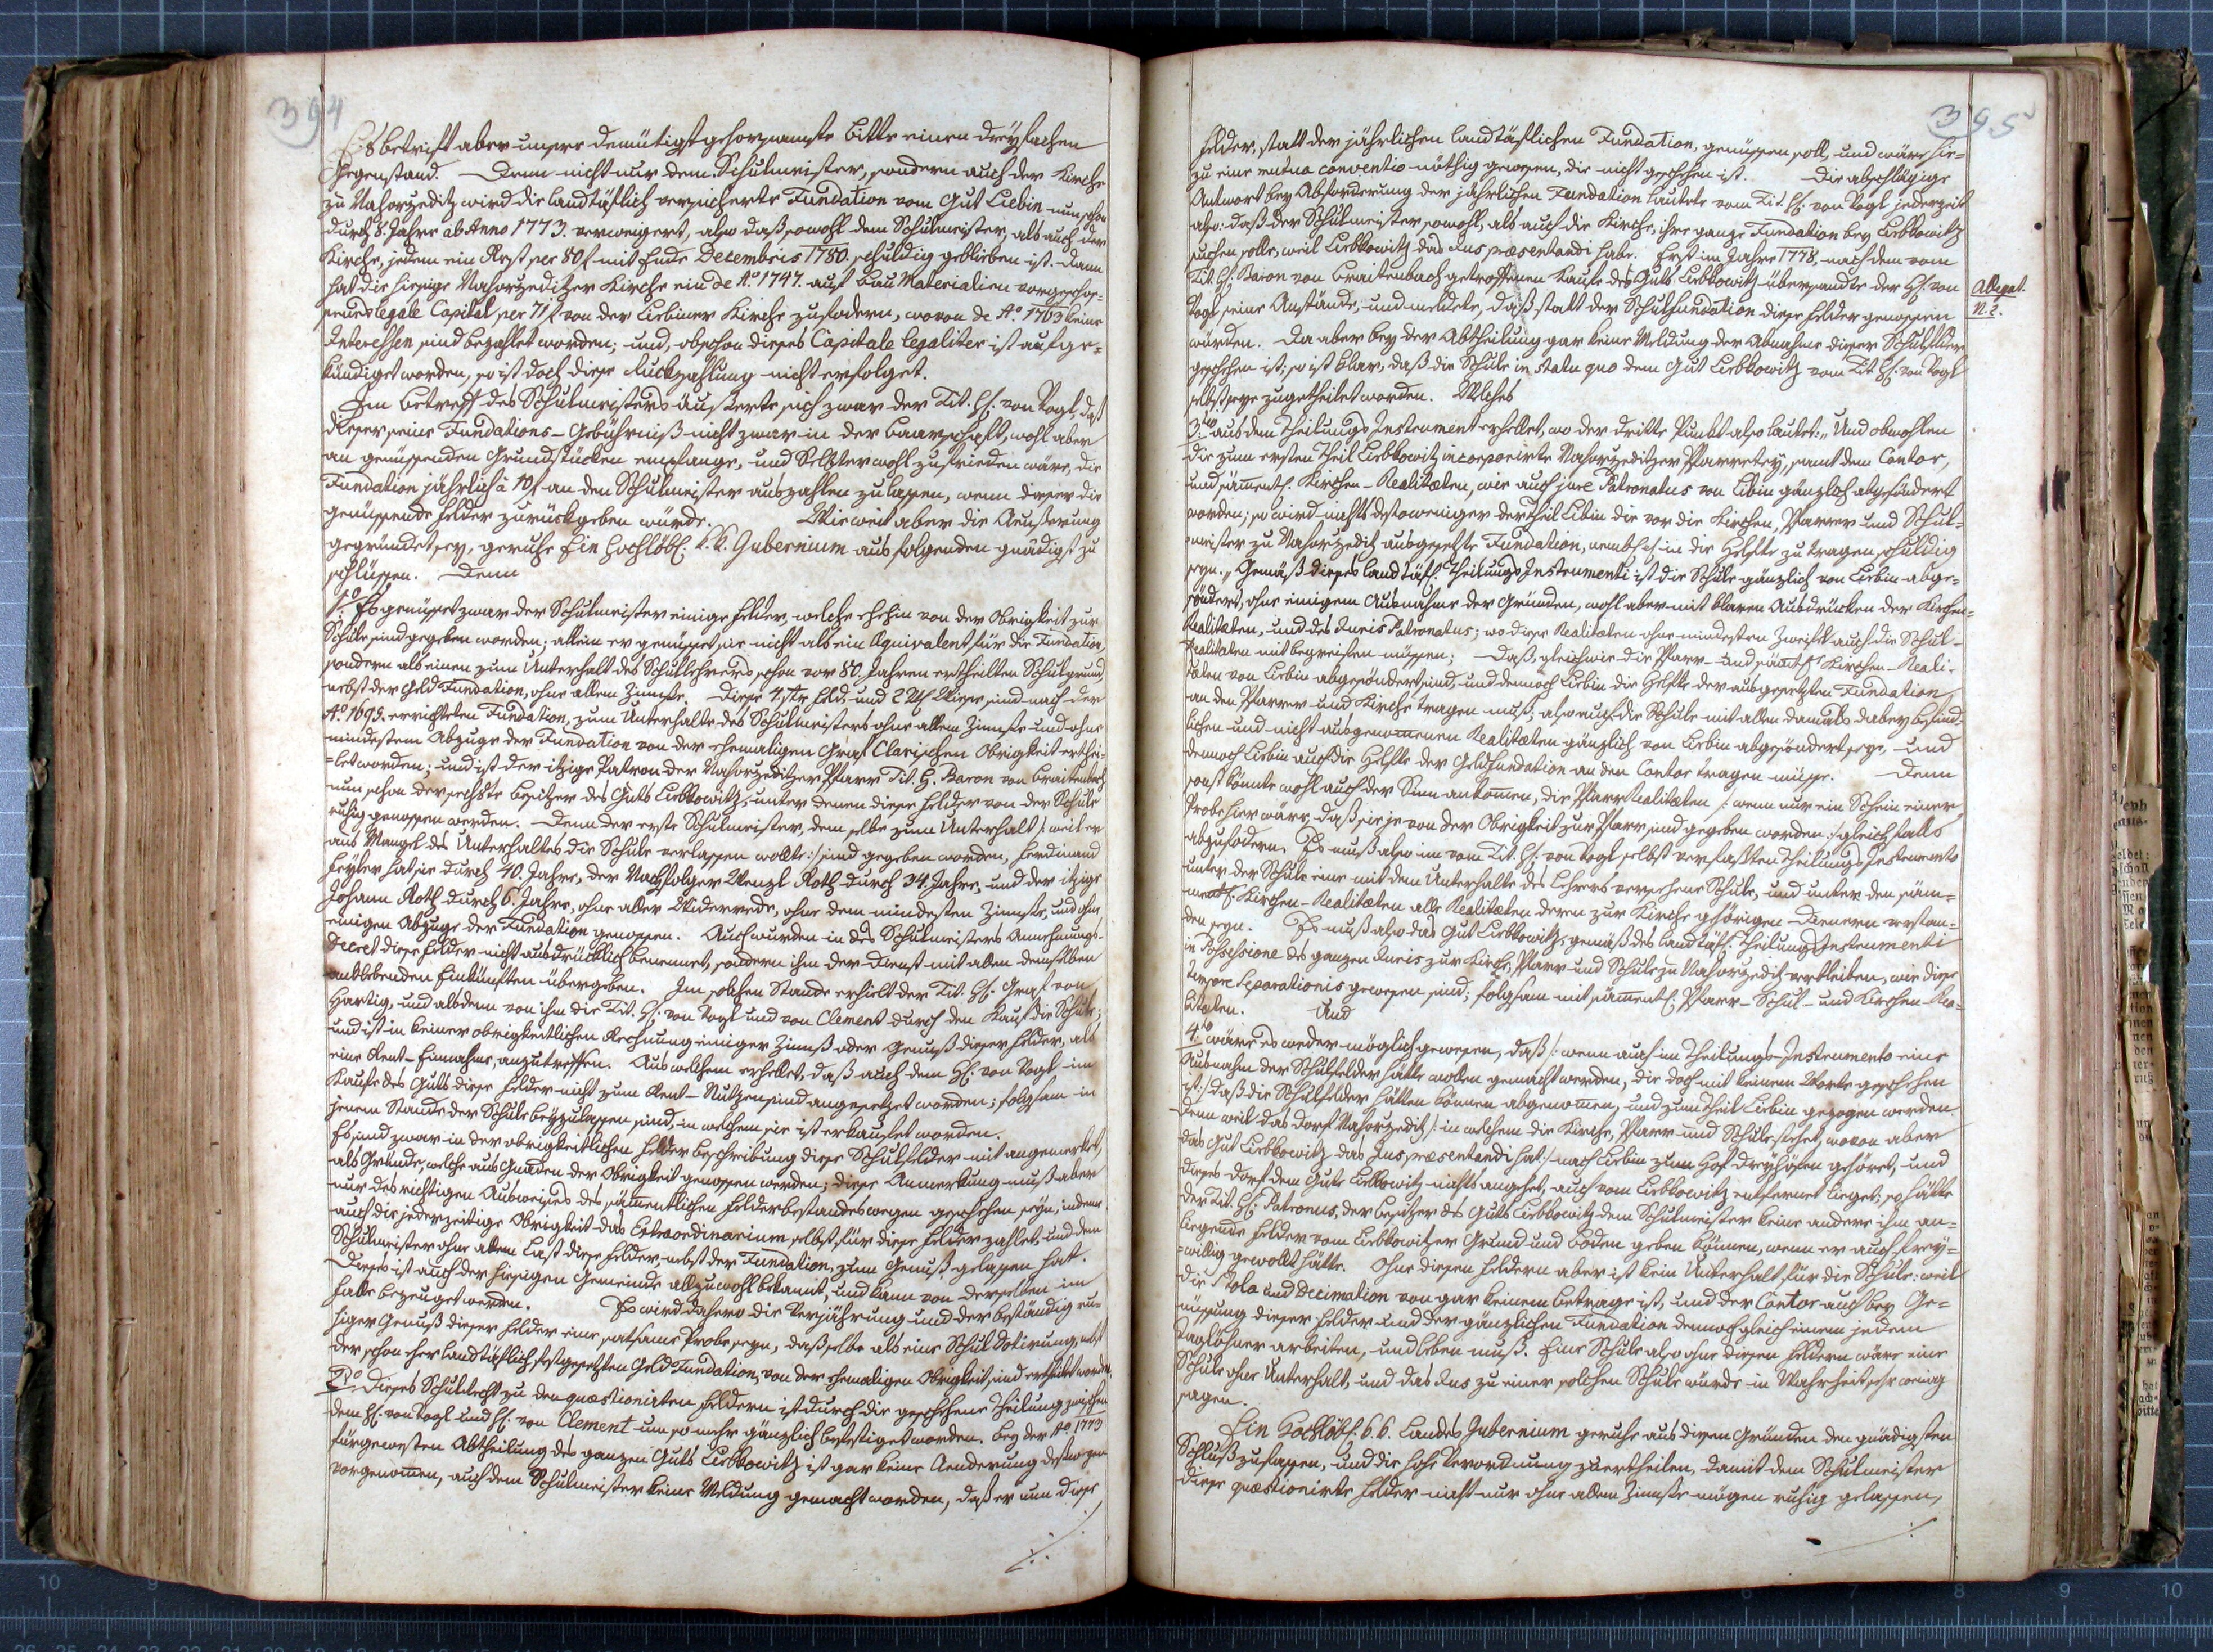 394
Es betrift aber unsere demütigst gehorsamste Bitte einen dreyfachen
Gegenstand. Denn nicht nur dem Schulmeister, sondern auch der Kirche
zu Nahorzeditz wird die landtäflich versicherte Fundation vom Gut Liebin nun schon
durch 8 Jahre ab Anno 1773. verweigert, also daß sowohl dem Schulmeister, als auch der
Kirche, jedem ein Rest per 80 f mit Ende Decembris 1780. schuldig geblieben ist. Dann
hat die hiesige Nahorzeditzer Kirche ein de Aº 1747. auf Bau Materialien vorgeschos=
senes legale Capital per 71 f von der Liebiner Kirche zu fodern, wovon de Aº 1763 keine
Interessen sind bezahlet worden; und, obschon dieses Capitale legaliter ist aufge=
kündiget worden, so ist doch diese Ruckzahlung nicht erfolget.
Im Betreff des Schulmeisters äusserte sich zwar der Tit. H: von Vogl, daß
dieser seine Fundations-Gebührniß nicht zwar in der Baarschaft, wohl aber
an genüssenden Grundstücken empfange, und Selbter wohl zufrieden wäre, die
Fundation jährlich à 10 f an den Schulmeister auszahlen zu lassen, wenn dieser die
genüssende Felder zurückgeben würde. Wie weit aber die Aeusserung
gegründet sey, geruhe Ein Hochlöbl: k. k. Gubernium aus folgenden gnädigst zu
schlüssen. Denn
1º. Es genüsset zwar der Schulmeister einige Felder, welche ehehin von der Obrigkeit zur
Schule sind gegeben worden; allein er genüsset sie nicht als ein Aequivalent für die Fundation,
sondern als einen zum Unterhalt des Schullehrers schon vor 80. Jahren ertheilten Schulgrund
nebst der Geld Fundation, ohne allem Zinnse. Diese 4 Str Feld, und 2 Wiese sind nach der
Aº 1695. errichteten Fundation, zum Unterhalte des Schulmeisters ohne allem Zinnse und ohne
mindestem Abzuge der Fundation von der ehemaligen Graf Clarischen Obrigkeit erthei=
=let worden; und ist der itzige Patron der Nahorzeditzer Pfarr Tit. H. Baron von Braitenbach
nun schon der sechste Besitzer des Guts Liebkowitz, unter denen diese Felder von der Schule
ruhig genossen werden. Denn der erste Schulmeister, dem selbe zum Unterhalt /: weil er
aus Mangel des Unterhaltes die Schule verlassen wollte :/ sind gegeben worden, Ferdinand
Feyler hat sie durch 40. Jahre, der Nachfolger Wenzl Roth durch 34. Jahre, und der itzige
Johann Roth durch 6. Jahre, ohne aller Widerrede, ohne dem mindesten Zinnse, und ohne
einigen Abzuge der Fundation genossen. Auch wurden in des Schulmeisters Annehmungs-
decret diese Felder nicht ausdrücklich benennet, sondern ihm der Dienst mit allen demselben
anklebenden Einkünften übergeben. Im solchen Stande erhielt der Tit. H: Graf von
Hartig, und alsdenn von ihm die Tit. H: von Vogl und von Clement durch den Kauf die Schule;
und ist in keiner obrigkeitlichen Rechnung einiger Zinnß oder Genuß dieser Felder, als
eine Rent-Einnahme, anzutreffen. Aus welchem erhellet, daß auch dem H: von Vogl im
Kaufe des Guts diese Felder nicht zum Rent-Nutzen sind angesetzet worden; folgsam in
jenem Stande der Schule beyzulassen sind, in welchem sie ist erkaufet worden.
Es sind zwar in der obrigkeitlichen Felder Beschreibung diese Schulfelder mit angemerket,
als Gründe, welche aus Gnaden der Obrigkeit genossen werden; diese Anmerkung muß aber
nur des richtigen Ausweises des sämmentlichen Felderbestandes wegen geschehen seyn, indeme
auch die jederzeitige Obrigkeit das Extraordinarium selbst für diese Felder zahlet, und dem
Schulmeister ohne allem Last diese Felder nebst der Fundation, zum Genuß gelassen hatt.
Dieses ist auch der hiesigen Gemeinde allzuwohl bekannt, und kann von derselben im
Falle bezeuget werden. Es wird dahero die Verjährung und der beständig ru=
higer Genuß dieser Felder eine sattsame Probe seyn, daß selbe als eine Schul Dotirung, nebst
der schon eher landtäflich festgesetzten Geld Fundation, von der ehemaligen Obrigkeit, sind ertheilet worden.
2º. Dieses Schulrecht zu den quæstionirten Feldern ist durch die geschehene Theilung zwischen
dem H: von Vogl und H: von Clement um so mehr gänzlich bestetiget worden. Bey der Aº 1773
fürgewesten Abtheilung des ganzen Guts Liebkowitz ist gar keine Aenderung destwegen
vorgenommen, auch dem Schulmeister keine Meldung gemacht worden, daß er nun diese
395
Felder, statt der jährlichen landtäflichen Fundation, genüssen soll, und wäre hie=
zu eine mutua conventio nöthig gewesen, die nicht geschehen ist. Die abschlägige
Antwort bey Abforderung der jährlichen Fundation lautete vom Tit. H: von Vogl jederzeit
also: daß der Schulmeister sowohl, als auch die Kirche, ihre ganze Fundation bey Liebkowitz
suchen solle, weil Liebkowitz das Jus præsentandi habe. Erst im Jahre 1778, nach dem vom
Tit. H: Baron von Braitenbach getroffenen Kaufe des Guts Liebkowitz übersandte der H: von
Allegat.
N. 2.
Vogl seine Anstände, und meldete, daß statt der Schulfundation diese Felder genossen
würden. Da aber bey der Abtheilung gar keine Meldung der Abnahme dieser Schulfelder
geschehen ist; so ist klar, daß die Schule in statu quo dem Gut Liebkowitz vom Tit. H: von Vogl
selbst seye zugetheilet worden. Welches
3tio aus dem Theilungs Instrument erhellet, wo der dritte Punkt also lautet: „Und obwohlen
die zum ersten Theil Liebkowitz incorporirte Nahorzeditzer Pfarretey, samt dem Cantor,
und sämmentl: Kirchen-Realitæten, wie auch jure Patronatus von Libin gänzlich abgesöndert
worden; so wird nichts destoweniger der Theil Libin die vor die Kirchen, Pfarrer und Schul=
meister zu Nahorzeditz ausgesetzte Fundation, nembl: in die Helfte zu tragen schuldig
seyn.„ Gemäß dieses landtäfl: Theilungs Instrumenti ist die Schule gänzlich von Liebin abge=
söndert, ohne einigem Ausnahme der Gründen, wohl aber mit klaren Ausdrücken der Kirchen=
Realitæten, und des Juris Patronatus; wo diese Realitæten ohne mindesten Zweifel auch die Schul-
Realitæten mit begreifen müssen; Daß, gleichwie die Pfarr- und sämtl: Kirchen-Reali-
tæten von Liebin abgesöndert sind, und dennoch Liebin die Helfte der ausgesetzten Fundation
an den Pfarrer und Kirche tragen muß; also auch die Schule mit allen damals dabey befind=
lichen und nicht ausgenommenen Realitæten gänzlich von Liebin abgesöndert seye, und
dennoch Liebin auch die Helfte der Geldfundation an den Cantor tragen müsse. Denn
sonst könnte wohl auch der Sinn ankommen, die Pfarr Realitæten /: wenn nur ein Schein einer
Probe hier wäre, daß sie je von der Obrigkeit zur Pfarr sind gegeben worden :/ gleichfalls
abzufodern. Es muß also im vom Tit. H: von Vogl selbst verfaßten Theilungs Instrumento
unter der Schule eine mit dem Unterhalte des Lehrers versehene Schule, und unter den säm=
mentl: Kirchen-Realitæten alle Realitæten deren zur Kirche ghörigen Dienern verstan=
den seyn. Es muß also das Gut Liebkowitz, gemäß des landtäfl: Theilungs Instrumenti
in Possessione des ganzen Juris zur Kirche, Pfarr und Schule zu Nahorzeditz verbleiben, wie diese
tempore Separationis gewesen sind; folgsam mit sämmentl: Pfarr- Schul- und Kirchen-Rea=
litæten. Und
4to wäre es weder möglich gewesen, daß /: wenn auch im Theilungs-Instrumento eine
Ausnahm der Schulfelder hätte wollen gemacht werden, die doch mit keinem Worte geschehen
ist :/ daß die Schulfelder hätten können abgenommen, und zum Theil Liebin gezogen werden
Denn weil das Dorf Nahorzeditz /: in welchem die Kirche, Pfarr und Schule stehet, wovon aber
das Gut Liebkowitz das Jus præsentandi hat :/ nach Liebin zum Hof Dreyhöfen gehöret, und
dieses Dorf dem Gute Liebkowitz nichts angehet, auch vom Liebkowitz entfernet lieget; so hätte
der Tit. H: Patronus, der Besitzer des Guts Liebkowitz dem Schulmeister keine andere ihm an=
liegende Felder vom Liebkowitzer Grund und Boden geben können, wenn er auch frey=
=willig gewollt hätte. Ohne diesen Feldern aber ist kein Unterhalt für die Schule: weil
die Stola und Decimation von gar keinem Betrage ist, und der Cantor auch bey Ge=
nüssung dieser Felder und der gänzlichen Fundation dennoch gleich einem jedem
Taglöhner arbeiten, und leben muß. Eine Schule also ohne diesen Feldern wäre eine
Schule ohne Unterhalt, und das Jus zu einer solchen Schule würde in Wahrheit sehr wenig
sagen.
Ein Hochlöbl: k. k. Landes Gubernium geruhe aus disen Gründen den gnädigsten
Schluß zu fassen, und die hohe Verordnung zu ertheilen, damit dem Schulmeister
diese quæstionirte Felder nicht nur ohne allem Zinnse mögen ruhig gelassen,